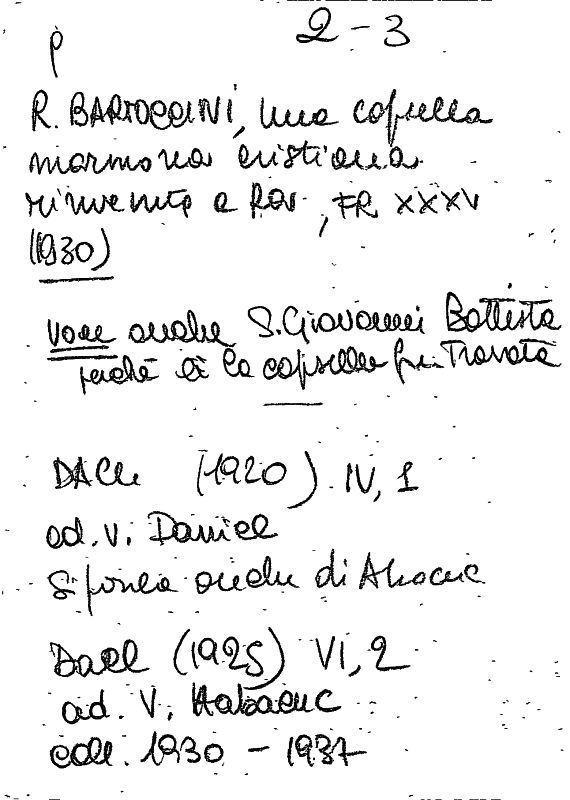 2-3
R. BARTOCCINI, Una capsella
marmorea cristiana
rinvenuta a Rav., FR XXXV
(1930)
vale anche S. Giovanni Battista
perché è la capsella fu trovata
DACL (1920) IV, 1
ad. v. Daniel
Si parla anche di Abacuc
Dacl (1925) VI, 2
ad. V. Habacuc
coll. 1930 - 1937